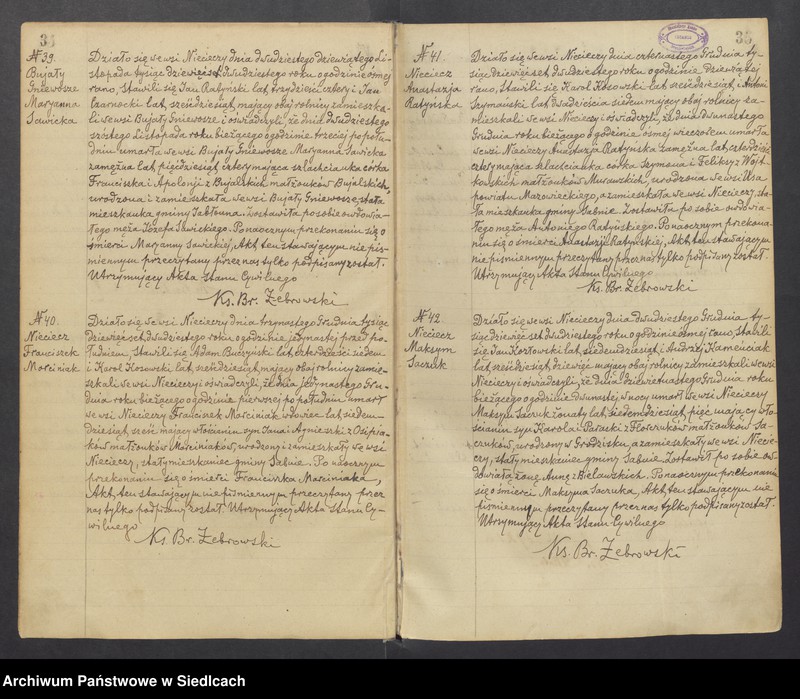 № 39.
Bujały
Gniewosze
Maryanna
Sawicka
Działo się we wsi Niecieczy dnia dwudziestego dziewiątego Li-
stopada tysiąc dziewięćset dwudziestego roku o godzinie ósmej
rano, Stawili się Jan Ratyński lat trzydzieści cztery i Jan
Czarnocki lat sześćdziesiąt, mający obaj rolnicy zamieszka-
li we wsi Bujały Gniewosze i oświadczyli, że dnia dwudziestego
szóstego Listopada roku bieżącego o godzinie trzeciej po połu-
dniu umarła we wsi Bujały Gniewosze Maryanna Sawicka
zamężna lat pięćdziesiąt cztery mająca szlachcianka córka
Franciszka i Apolonji z Bujalskich małżonków Bujalskich,
urodzona i zamieszkała we wsi Bujały Gniewosze, stała
mieszkanka gminy Jabłonna. Zostawiła po sobie owdowia-
łego męża Józefa Sawickiego. Po naocznym przekonaniu się o
śmierci Maryanny Sawickiej, Akt ten stawającym nie piś-
miennym przeczytany przez nas tylko podpisany został.
Utrzymujący Akta Stanu Cywilnego
Ks. Br. Żebrowski
№ 40.
Nieciecz
Franciszek
Marciniek
Działo się we wsi Niecieczy dnia trzynastego Grudnia tysiąc
dziewięćset dwudziestego roku o godzinie jedynastej przed po-
łudniem, Stawili się Adam Buczyński lat czterdzieści siedem
i Karol Kosowski lat, sześćdziesiąt, mający obaj rolnicy zamie-
szkali we wsi Niecieczy i oświadczyli, że dnia jedynastego Gru-
dnia roku bieżącego o godzinie pierwszej po południu umarł
we wsi Niecieczy Franciszek Marciniak wdowiec lat siedem-
dziesiąt sześć mający włościanin syn Jana i Agnieszki z Osipia-
ków małżonków Marciniaków, urodzony i zamieszkały we wsi
Niecieczy, stały mieszkaniec gminy Sabnie. Po naocznym
przekonaniu się o śmierci Franciszka Marciniaka,
Akt, ten stawającym nie piśmiennym przeczytany przez
nas tylko podpisany został. Utrzymujący Akta Stanu Cy-
wilnego
Ks. Br. Żebrowski
№ 41.
Nieciecz
Anastazja
Ratyńska
Działo się we wsi Niecieczy dnia czternastego Grudnia ty-
siąc dziewięćset dwudziestego roku o godzinie dziewiątej
rano, Stawili się Karol Kosowski lat sześćdziesiąt, i Antoni
Szymański lat dwadzieścia siedem mający obaj rolnicy za-
mieszkali we wsi Niecieczy i oświadczyli, że dnia dwunastego
Grudnia roku bieżącego o godzinie ósmej wieczorem umarła
we wsi Niecieczy Anastazja Ratyńska zamężna lat, czterdzieści
cztery mająca szlachcianka córka Szymona i Feliksy z Wojt-
kowskich małżonków Murawskich, urodzona we wsi Usza
powiatu Mazowieckiego, a zamieszkała we wsi Niecieczy, sta-
ła mieszkanka gminy Sabnie. Zostawiła po sobie owdowia-
łego męża Antoniego Ratyńskiego. Po naocznym przekona-
niu się o śmierci Anastazji Ratyńskiej, Akt, ten stawającym
nie piśmiennym przeczytany przez nas tylko podpisany został.
Utrzymujący Akta Stanu Cywilnego
Ks. Br. Żebrowski
№ 42.
Nieciecz
Maksym
Saczuk
Działo się we wsi Niecieczy dnia dwudziestego Grudnia ty-
siąc dziewięćset dwudziestego roku o godzinie ósmej rano, Stawili
się Jan Kozłowski lat, siedemdziesiąt i Andrzej Kamieniak
lat, sześćdziesiąt, dziewięć mający obaj rolnicy zamieszkali we wsi
Niecieczy i oświadczyli, że dnia dziewiętnastego Grudnia roku
bieżącego o godzinie dwunastej w nocy umarł we wsi Niecieczy
Maksym Saczuk żonaty lat, siedemdziesiąt, pięć mający wło-
ścianin syn Karola i Paraski z małżonków Sa-
czuków, urodzony w Grodzisku, a zamieszkały we wsi Niecie-
czy, stały mieszkaniec gminy Sabnie. Zostawił po sobie ow-
dowiałą żonę Annę z Bielawskich. Po naocznym przekonaniu
się o śmierci Maksyma Saczuka, Akt, ten stawającym nie
piśmiennym przeczytany przez nas tylko podpisany został.
Utrzymujący Akta Stanu Cywilnego
Ks. Br. Żebrowski
Archiwum Państwowe w Siedlcach